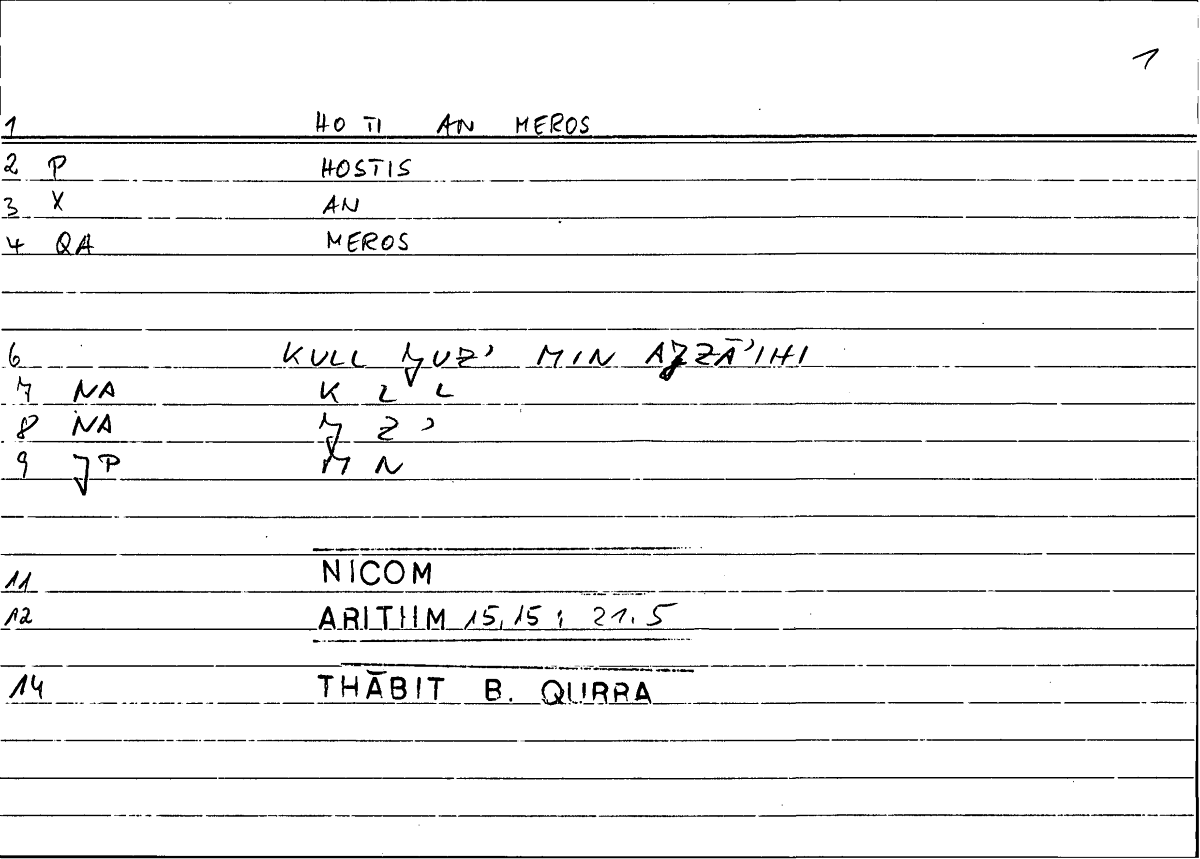 1
1 HO TI AN MEROS
2 P HOSTIS
3 X AN
4 QA MEROS
6 KULL ǦUZʾ MIN AǦZĀʾIHI
7 NA K L L
8 NA Ǧ Z ʾ
9 JP M N
11 NICOM
12 ARITHM 15,15; 21.5
14 THĀBIT B. QURRA